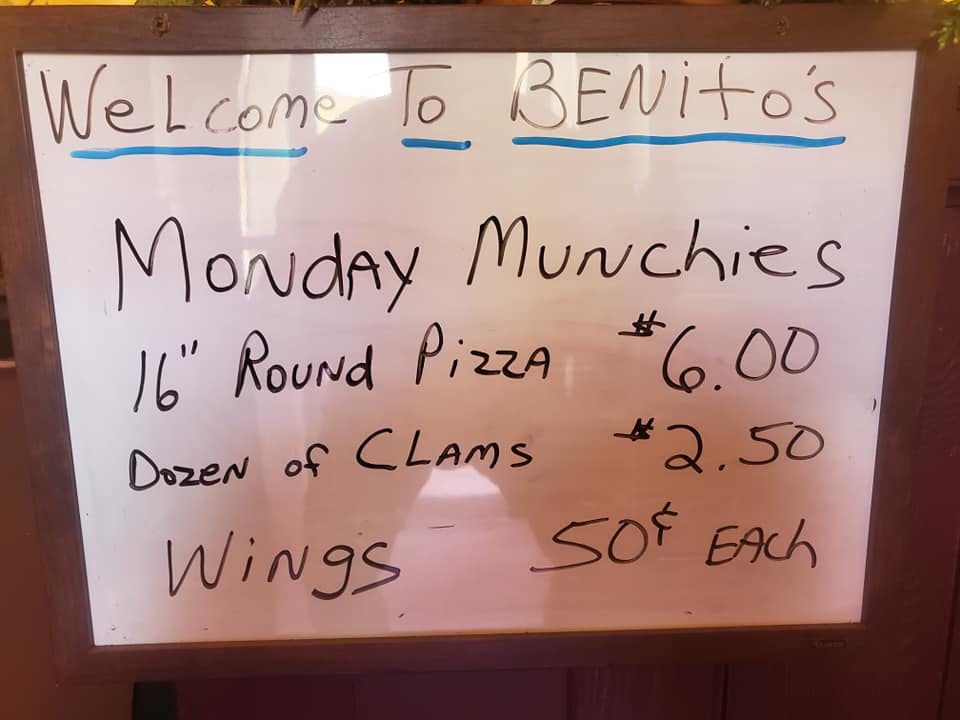 WeLcome To BENito's
MoNdAY MuNchies
16" RouNd PizzA $6.00
DozeN of CLAMS $2.50
WiNgS 50¢ EACh